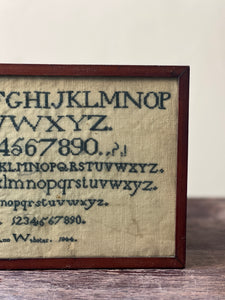 TGHIJKLMNOP
VWXYZ.
4567890.,?!
KLMNOPQRSTUVWXYZ.
klmnopqrstuvwxyz.
nopqrstuvwxyz.
1234567890.